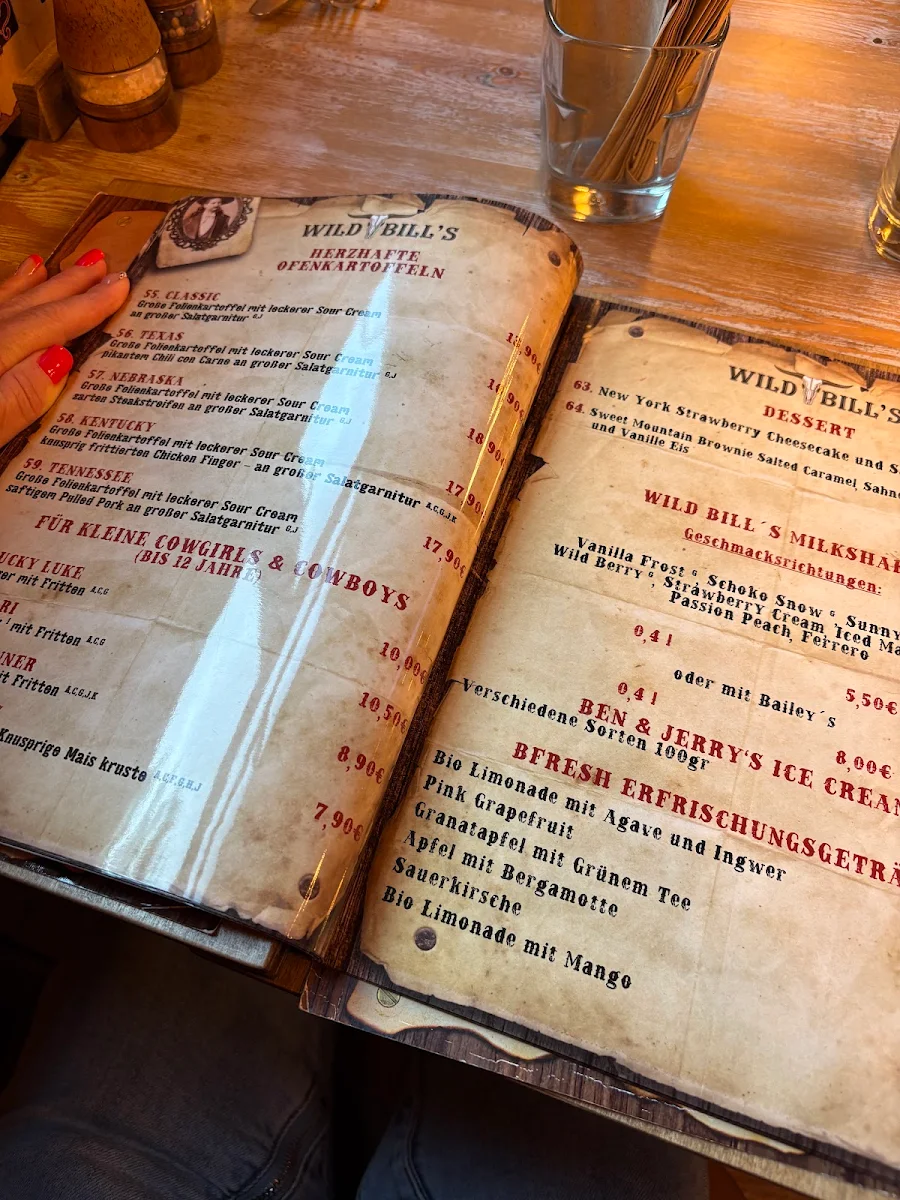 WILD BILL'S
HERZHAFTE
OFENKARTOFFELN
55. CLASSIC
Große Folienkartoffel mit leckerer Sour Cream
an großer Salatgarnitur G,J
56. TEXAS
Große Folienkartoffel mit leckerer Sour Cream
pikantem Chili con Carne an großer Salatgarnitur G,J
57. NEBRASKA
Große Folienkartoffel mit leckerer Sour Cream
zarten Steakstreifen an großer Salatgarnitur G,J
18,90€
58. KENTUCKY
Große Folienkartoffel mit leckerer Sour Cream
knusprig frittierten Chicken Finger – an großer Salatgarnitur A,C,G,J,K
17,90€
59. TENNESSEE
Große Folienkartoffel mit leckerer Sour Cream
saftigem Pulled Pork an großer Salatgarnitur G,J
17,90€
FÜR KLEINE COWGIRLS & COWBOYS
(BIS 12 JAHRE)
UCKY LUKE
mit Fritten A,C,G
10,00€
mit Fritten A,C,G
10,50€
Fritten A,C,G,J,K
8,90€
Knusprige Mais kruste A,C,F,G,H,J
7,90€
WILD BILL'S
DESSERT
63. New York Strawberry Cheesecake und S
64. Sweet Mountain Brownie Salted Caramel, Sahne
und Vanille Eis
WILD BILL´S MILKSHA
Geschmacksrichtungen:
Vanilla Frost G, Schoko Snow G, Sunny
Wild Berry G, Strawberry Cream, Iced Ma
Passion Peach, Ferrero
0,4 l
5,50€
oder mit Bailey´s
0,4 l
8,00€
BEN & JERRY'S ICE CREAM
Verschiedene Sorten 100gr
BFRESH ERFRISCHUNGSGETRÄ
Bio Limonade mit Agave und Ingwer
Pink Grapefruit
Granatapfel mit Grünem Tee
Apfel mit Bergamotte
Sauerkirsche
Bio Limonade mit Mango